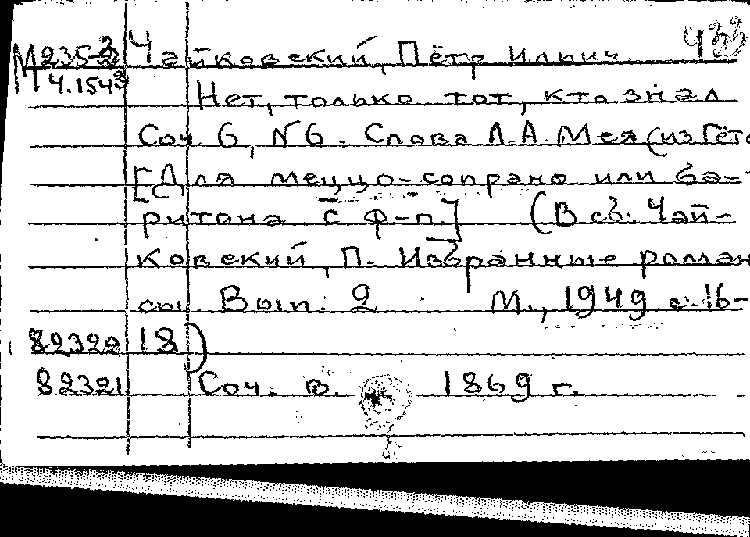 М235-2 Чайковский, Пётр Ильич 433
Ч.1543
Нет, только тот, кто знал
Соч. 6, N6. Слова Л.А. Мея (из Гёте
[Для меццо-сопрано или ба-
ритона с ф-п.] (В сб: Чай-
ковский, П. Избранные роман
сы. Вып. 2 М., 1949 с. 16-
82322 18)
82321 Соч. в. 1869 г.